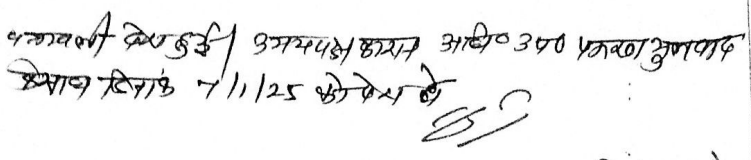 पत्रावली पेश हुई। उभयपक्ष द्वारा अधि० उप० प्रकरण सुनवाई
हेतु दिनांक 7/1/25 को पेश हो